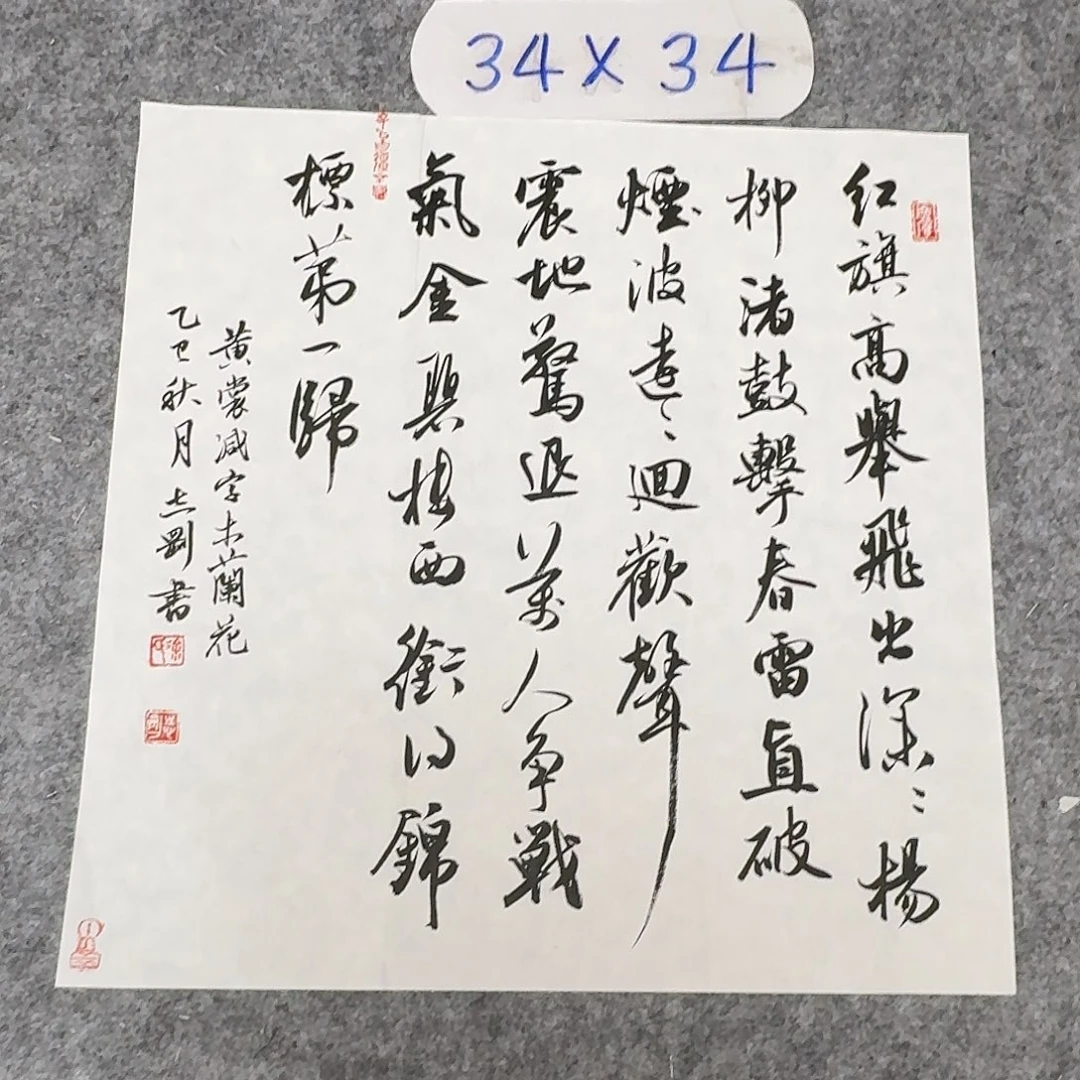 34 X 34
红旗高舉飛出深〻楊
柳渚鼓擊春雷直破
煙波遠〻迴歡聲
震地驚退萬人争戰
氣金碧楼西銜得錦
標苐一歸
黄裳减字木蘭花
乙巳秋月志剛書